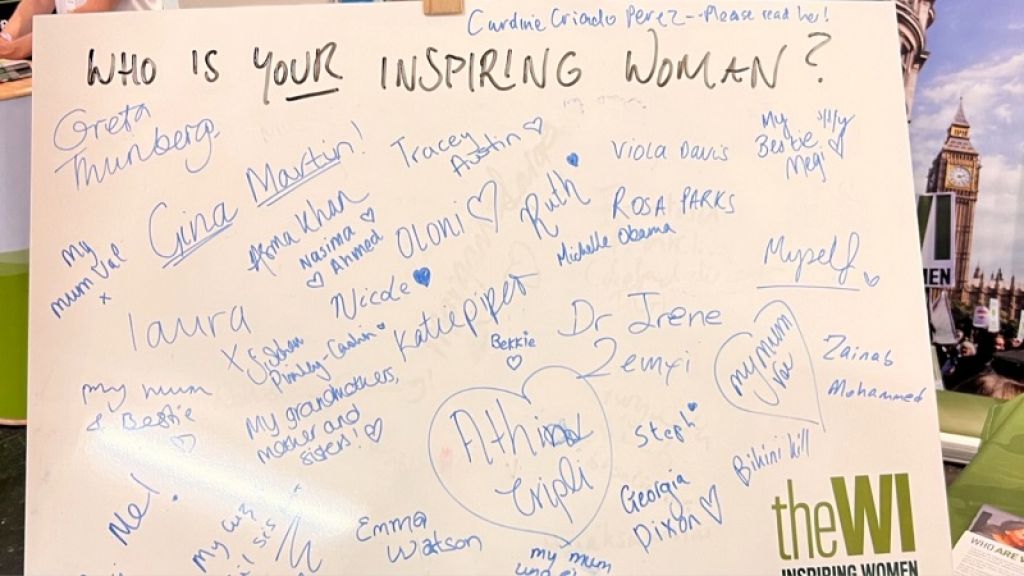 Caroline Criado Perez -- Please read her!
WHO IS YOUR INSPIRING WOMAN?
Greta
Thunberg.
Gina Martin!
Tracey
Austin
VIOLA DAVIS
My
Bestie
Megi
My
mum Val
x
Asma Khan
Nasima
Ahmed
OLONI
Ruth
ROSA PARKS
Michelle Obama
Myself
laura
Nicole
Katie piper
Bekkie
Dr Irene
Zemyi
my mum
Zainab
Mohammed
my mum
& Bestie
My grandmothers,
mother and
sisters!
Steph
Georgia
Dixon
Bikini kill
Me!
Emma
Watson
my mum
theWI
INSPIRING WOMEN
WI
MEN
WHO ARE